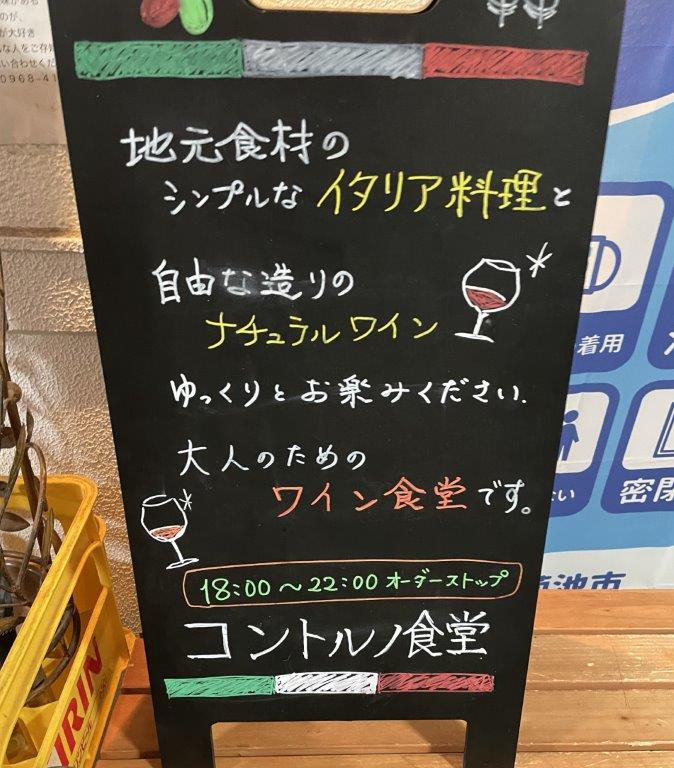 のが、
が大好き
0968-41
地元食材の
シンプルなイタリア料理と
自由な造りの
ナチュラルワイン
ゆっくりとお楽みください.
大人のための
ワイン食堂です。
18:00〜22:00 オーダーストップ
コントルノ食堂
着用
密閉
菊池市
KIRIN